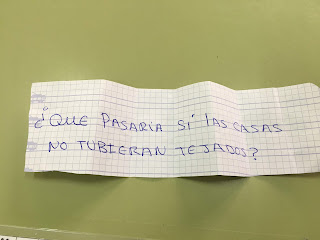 ¿QUE PASARIA SI LAS CASAS
NO TUBIERAN TEJADOS?